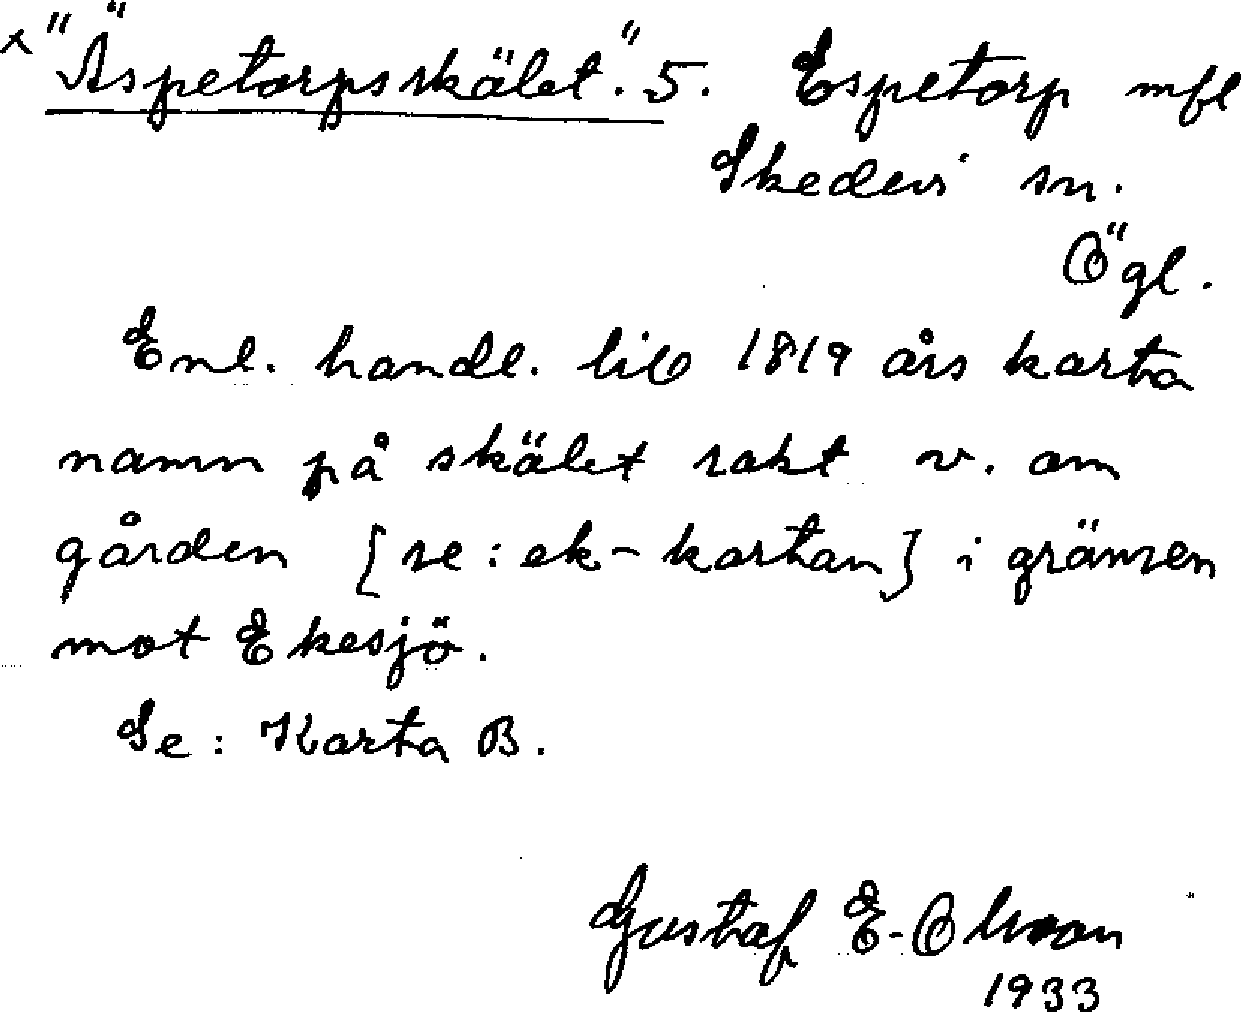 x "Äspetorpsskälet". 5. Espetorp mfl
Skedevi sn.
Ögl.
Enl. handl. till 1819 års karta
namn på skälet rakt v. om
gården [se: ek-kartan] i gränsen
mot Ekesjö.
Se: Karta B.
Gustaf E-Olsson
1933